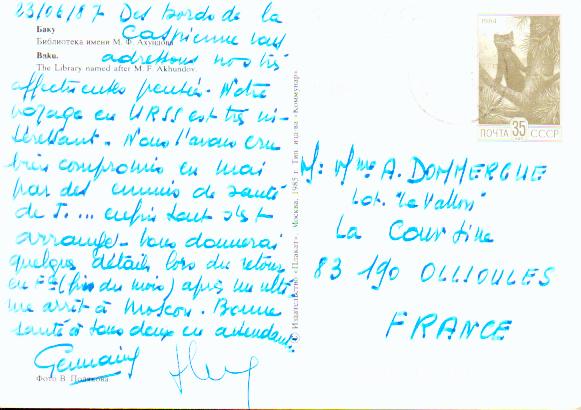 23/06/87 Des bords de la
Caspienne vous
adressons nos très
affectueuses pensées. Notre
voyage en URSS est très in-
téressant. Nous l'avons cru
bien compromis en mai
par des ennuis de santé
de J.... enfin tout s'est
arrangé. Vous donnerai
quelques détails lors du retour
en FF (fin du mois) après un ulti-
me arrêt à Moscou. Bonne
santé à tous deux en attendant.
Germain
Баку
Библиотека имени М. Ф. Ахундова
Baku.
The Library named after M. F. Akhundov
Фото В. Полякова
© Издательство «Плакат». Москва. 1985 г. Тип. изд-ва «Коммунар»
1984
ПОЧТА 35 СССР
M. Mme A. DOMMERGUE
Lot. "Le Vallon"
La Courtine
83 190 OLLIOULES
FRANCE